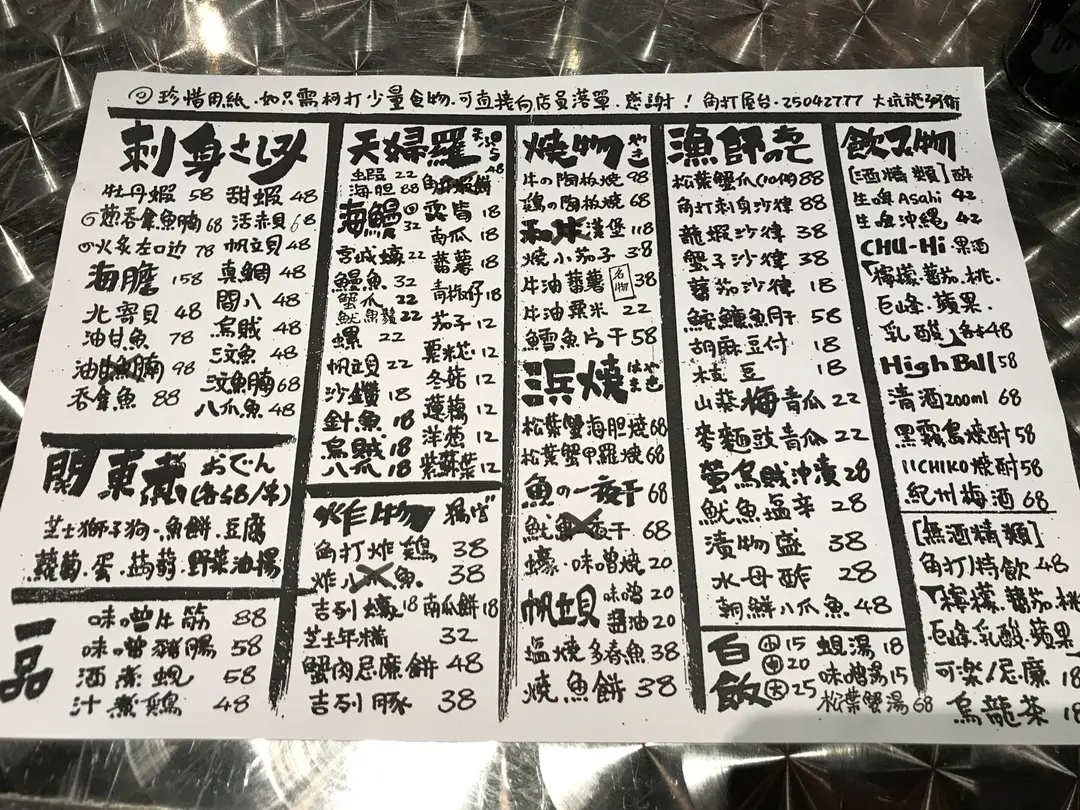 珍惜用紙．如只需柯打少量食物．可直接向店員落單．感謝！角打屋台・25042777 大坑
刺身さしみ
牡丹蝦 58 甜蝦 48
吞拿魚腩 68 活赤貝 68
火炙左口边 78 帆立貝 48
海膽 158 真鯛 48
北寄貝 48 間八 48
油甘魚 78 烏賊 48
油甘魚腩 98 池魚 48
吞拿魚 88 池魚腩 68
八爪魚 48
関東煮 おでん
芝士獅子狗・魚餅・豆腐
蘿蔔・蛋・蒟蒻・野菜油揚
一品
味の噌牛筋 88
味の噌豬腸 58
酒煮蜆 58
汁煮鶏 48
天婦羅
蝦 22
海胆 88
海鰻 32 露筍 18
南瓜 18
宮城蠔 22 蕃薯 18
鰻魚 32 青椒仔 18
蟹爪 22
魷魚鬚 22 茄子 12
螺 22 粟米芯 12
帆立貝 22 冬菇 12
沙鑽 18 蓮藕 12
針魚 18 洋葱 12
烏賊 18 紫蘇葉 12
八爪 18
炸物 揚げ
角打炸鶏 38
炸八爪魚 38
吉列蠔 18 南瓜餅 18
芝士年糕 32
蟹肉忌廉餅 48
吉列豚 38
燒物 やき
牛の陶板燒 98
鶏の陶板燒 68
和牛漢堡 118
燒小茄子 38
牛油蕃薯 名物 38
牛油粟米 22
鱈魚片干 58
浜燒 はまやき
松葉蟹海胆燒 68
松葉蟹甲羅燒 68
魚の一夜干 68
夜干 68
蠔・味噌燒 20
帆立貝 味噌 20
醬油 20
塩燒多春魚 38
燒魚餅 38
漁師の
松葉蟹爪(10個) 88
角打刺身沙律 88
龍蝦沙律 38
蟹子沙律 38
蕃茄沙律 18
鮟鱇魚肝 58
胡麻豆付 18
枝豆 18
山葵・梅青瓜 22
麥麵豉青瓜 22
螢烏賊沖漬 28
魷魚塩辛 28
漬物盛 38
水母酢 28
朝鮮八爪魚 48
白飯 小 15 中 20 大 25
蜆湯 18
味噌湯 15
松葉蟹湯 68
飲み物
[酒精類]
生啤 Asahi 42
生啤沖繩 42
CHU-Hi 果酒
「檸檬・蕃茄・桃・
巨峰・蘋果・
乳酸」各48
High Ball 58
清酒 200ml 68
黑霧島燒酎 58
IICHIKO燒酎 58
紀州梅酒 68
[無酒精類]
角打特飲 48
「檸檬・蕃茄・桃
巨峰・乳酸・蘋果
可樂/忌廉 18
烏龍茶 18